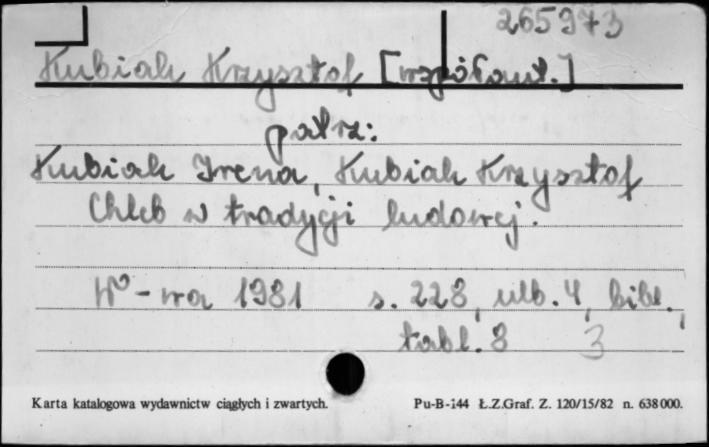 265973
Kubiak Krzysztof [współaut.]
patrz:
Kubiak Irena, Kubiak Krzysztof
Chleb w tradycji ludowej.
W-wa 1981 s. 228, ulb. 4, bibl.,
tabl. 8 3
Karta katalogowa wydawnictw ciągłych i zwartych. Pu-B-144 Ł.Z.Graf. Z. 120/15/82 n. 638000.